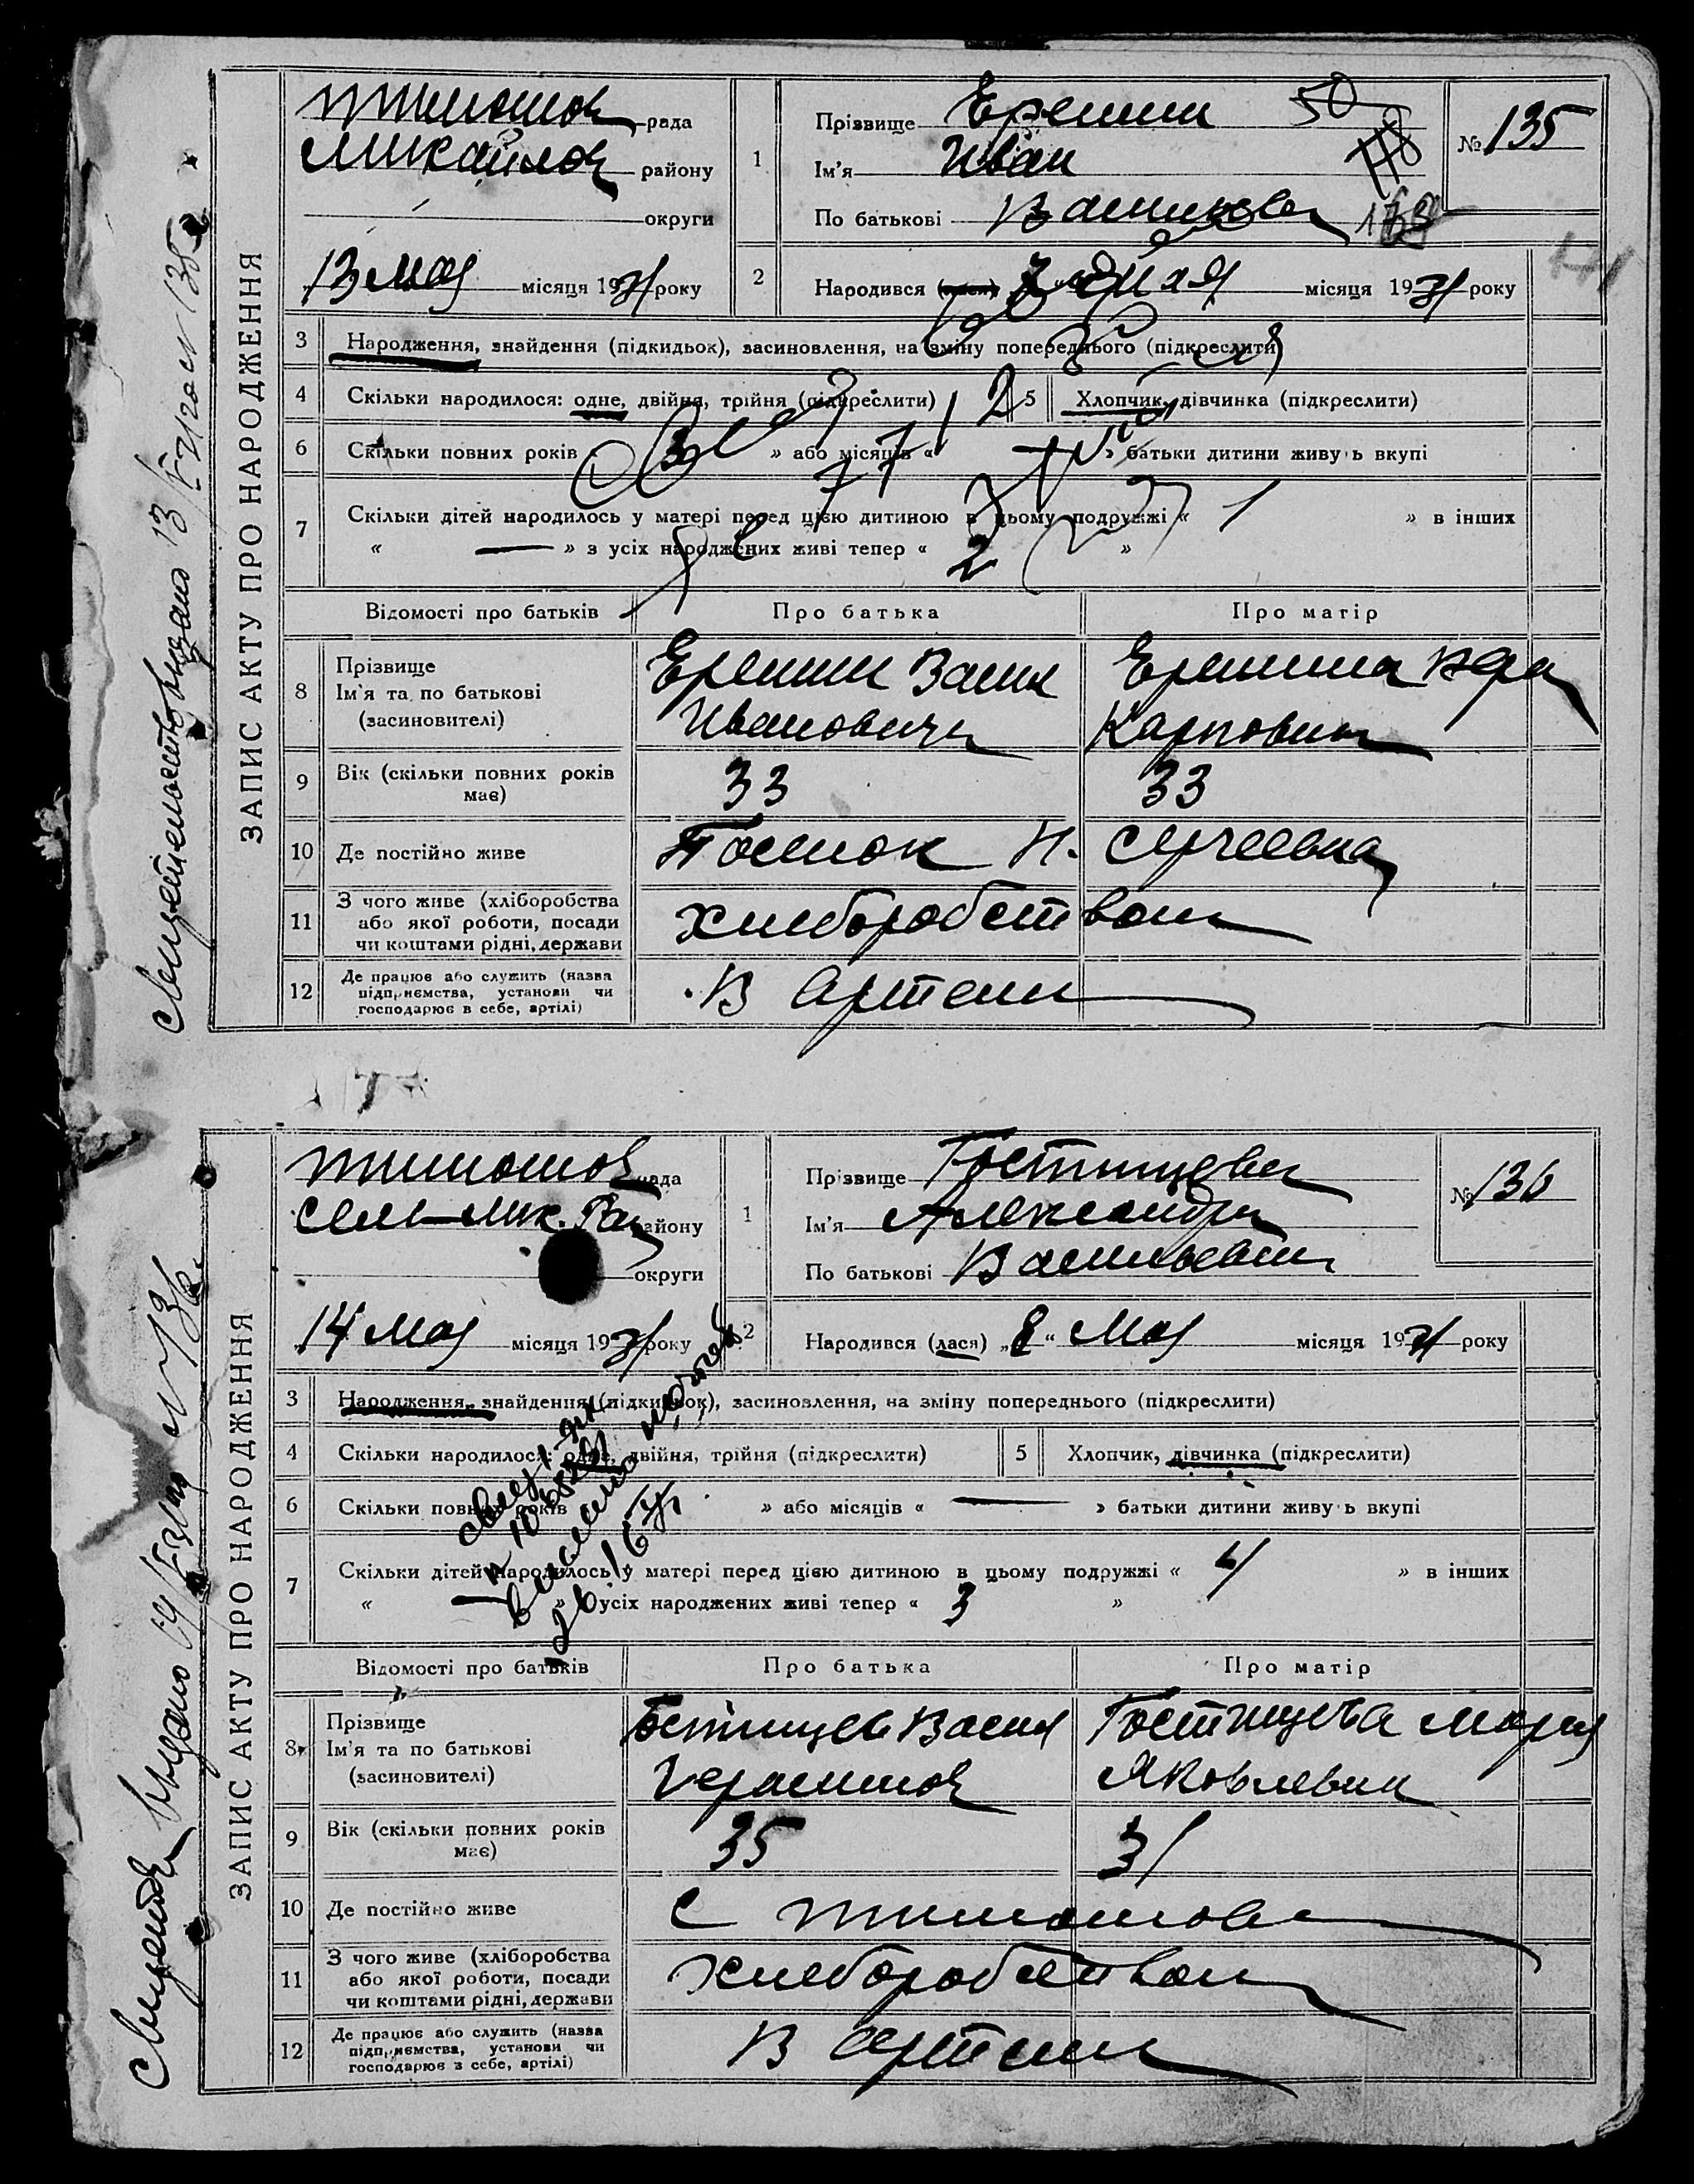 ЗАПИС АКТУ ПРО НАРОДЖЕННЯ
Тимошов рада
Михайлов району
округи
13 мая місяця 1931 року
1
Прізвище Еремин 50
Ім'я Иван
По батькові Васильев
№ 135
2
Народився (лася) 7 мая місяця 1931 року
3 Народження, знайдення (підкидьок), засиновлення, на зміну попереднього (підкреслити)
4 Скільки народилося: одне, двійня, трійня (підкреслити) 5 Хлопчик, дівчинка (підкреслити)
6 Скільки повних років » або місяців « » батьки дитини живуть вкупі
7 Скільки дітей народилось у матері перед цією дитиною в цьому подружжі « 1 » в інших
« — » з усіх народжених живі тепер « 2 »
Відомості про батьків Про батька Про матір
8 Прізвище
Ім'я та по батькові
(засиновителі)
Еремин Васил
Иванович
Еремина Вера
Карповна
9 Вік (скільки повних років має) 33 33
10 Де постійно живе Поселок Н. Сергеевка
11 З чого живе (хліборобства
або якої роботи, посади
чи коштами рідні, держави
Хлеборобством
12 Де працює або служить (назва
підприємства, установи чи
господарює в себе, артілі)
В Артели
ЗАПИС АКТУ ПРО НАРОДЖЕННЯ
Тимошов рада
Мик. Рай району
округи
14 мая місяця 1931 року
1
Прізвище Гостищева
Ім'я Александра
По батькові Васильевна
№ 136
2
Народився (лася) „8“ мая місяця 1931 року
3 Народження, знайдення (підкидьок), засиновлення, на зміну попереднього (підкреслити)
4 Скільки народилося: одне, двійня, трійня (підкреслити) 5 Хлопчик, дівчинка (підкреслити)
6 Скільки повних років » або місяців « — » батьки дитини живуть вкупі
7 Скільки дітей народилось у матері перед цією дитиною в цьому подружжі « 4 » в інших
« — » з усіх народжених живі тепер « 3 »
Відомості про батьків Про батька Про матір
8 Прізвище
Ім'я та по батькові
(засиновителі)
Гостищев Васил
Герасимов
Гостищева Мария
Яковлевна
9 Вік (скільки повних років має) 35 31
10 Де постійно живе С Тимошовка
11 З чого живе (хліборобства
або якої роботи, посади
чи коштами рідні, держави
Хлеборобством
12 Де працює або служить (назва
підприємства, установи чи
господарює в себе, артілі)
В Артели